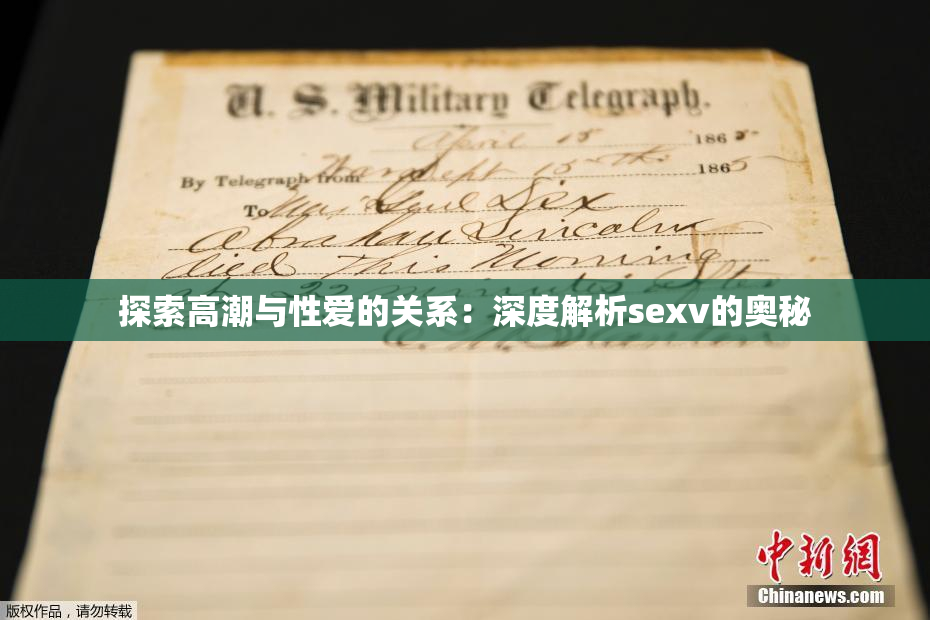 U. S. Military Telegraph.
April 15 1865
By Telegraph from War Dept 15th 1865
To Maj Genl Dix
Abraham Lincoln
died This Morning
at 22 minutes after
探索高潮与性爱的关系：深度解析sexv的奥秘
中新网
Chinanews.com
版权作品，请勿转载